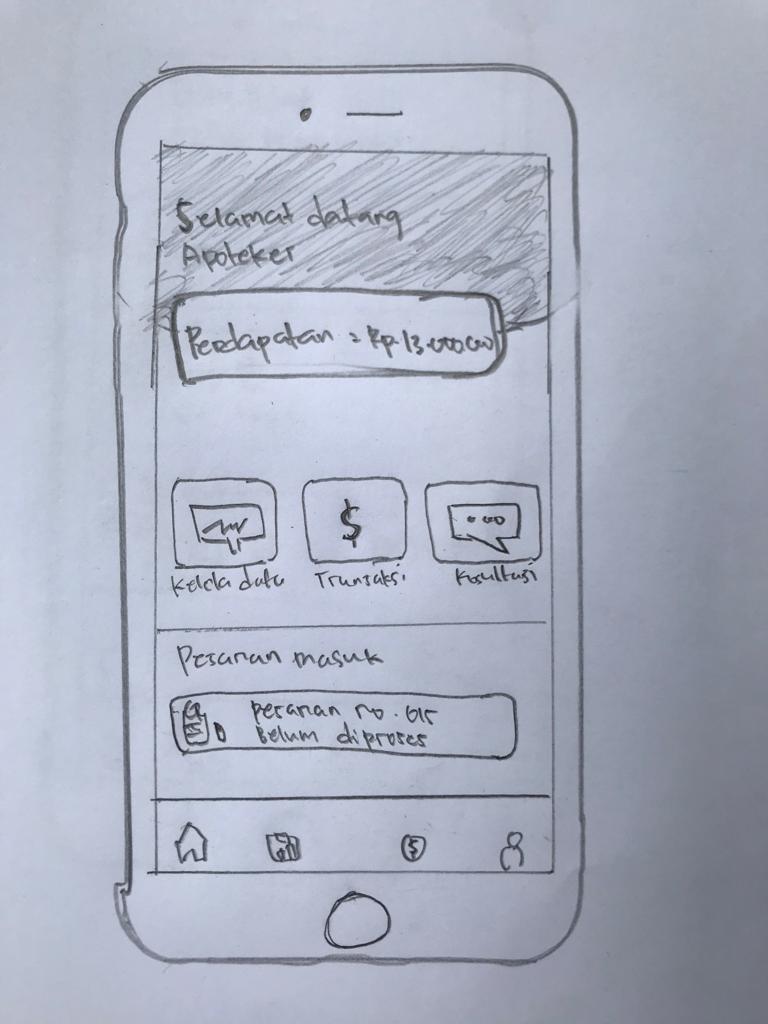 Selamat datang
Apoteker
Pendapatan = Rp. 13.000.000
$
Kelola data
Transaksi
Kosultasi
Pesanan masuk
pesanan no. 615
Belum diproses
$